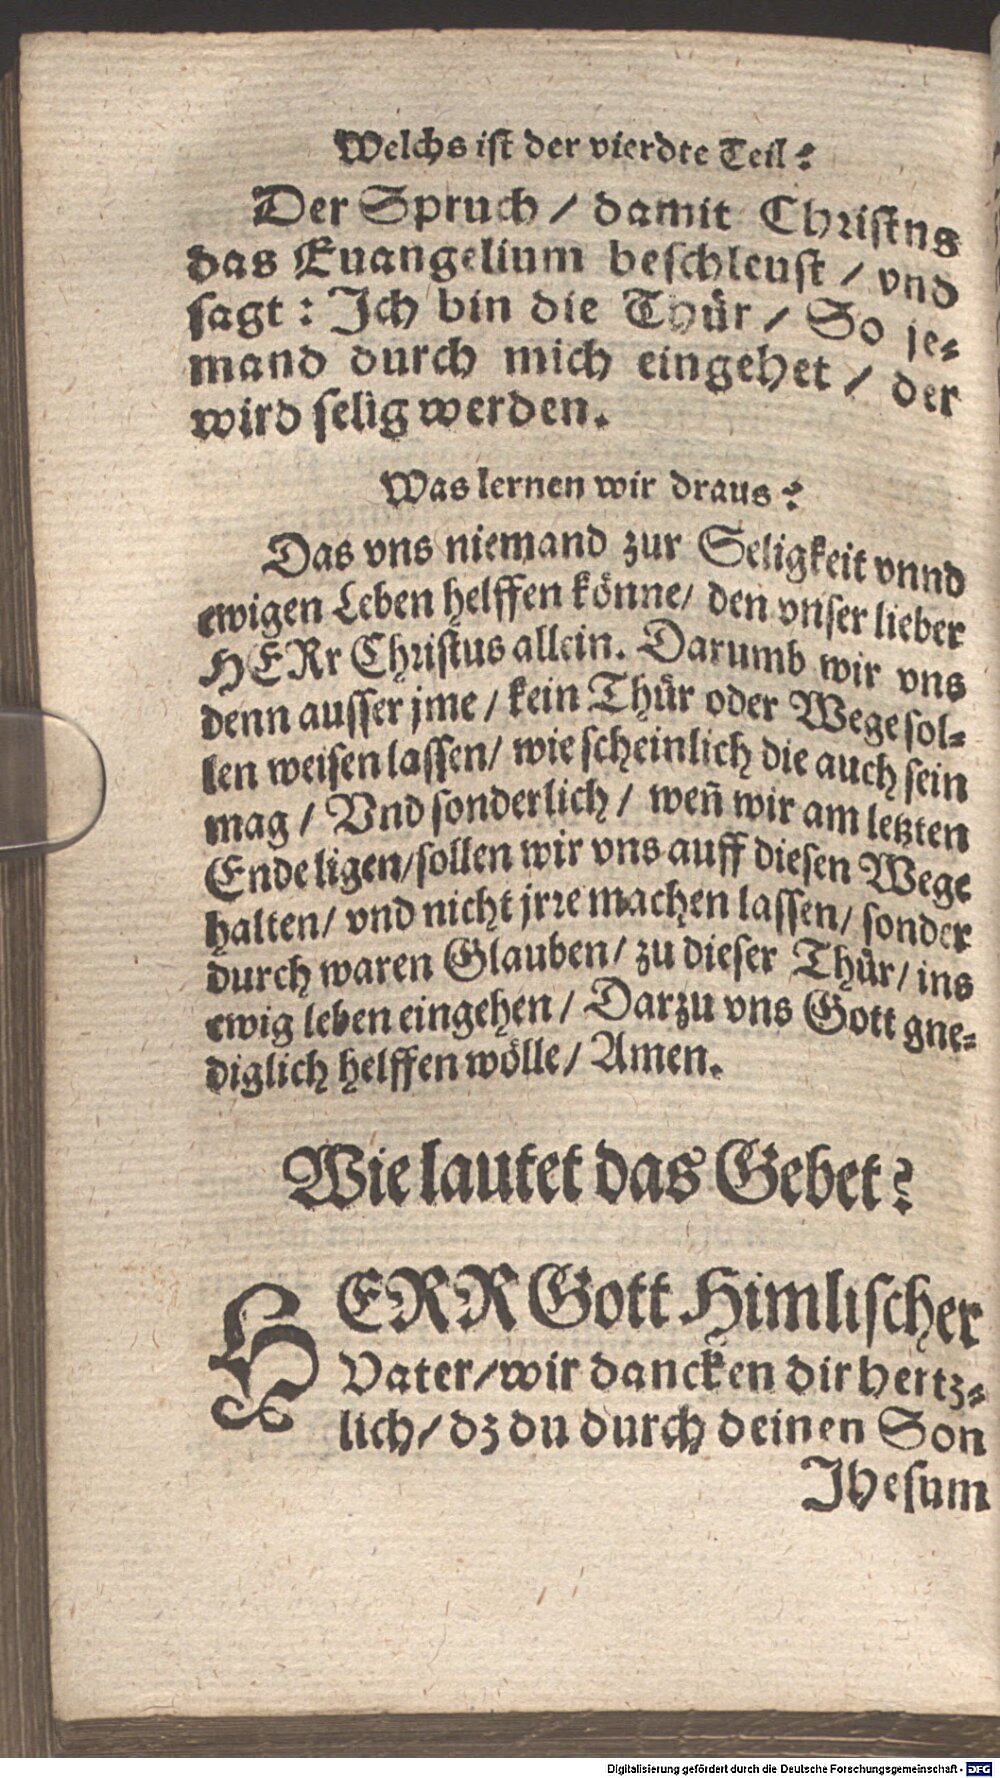 Welchs ist der vierdte Teil?
Der Spruch / damit Christns
das Euangelium beschleust / vnd
sagt: Ich bin die Thür / So je-
mand durch mich eingehet / der
wird selig werden.
Was lernen wir draus?
Das vns niemand zur Seligkeit vnnd
ewigen Leben helffen könne/ den vnser lieber
HERr Christus allein. Darumb wir vns
denn ausser jme / kein Thür oder Wege sol-
len weisen lassen/ wie scheinlich die auch sein
mag / Vnd sonderlich / weñ wir am letzten
Ende ligen/sollen wir vns auff diesen Wege
halten/ vnd nicht jrre machen lassen/ sonder
durch waren Glauben/ zu dieser Thür/ ins
ewig leben eingehen / Darzu vns Gott gne-
diglich helffen wölle/ Amen.
Wie lautet das Gebet?
HERR Gott Himlischer
Vater/wir dancken dir hertz-
lich/ dz du durch deinen Son
Jhesum
Digitalisierung gefördert durch die Deutsche Forschungsgemeinschaft - DFG